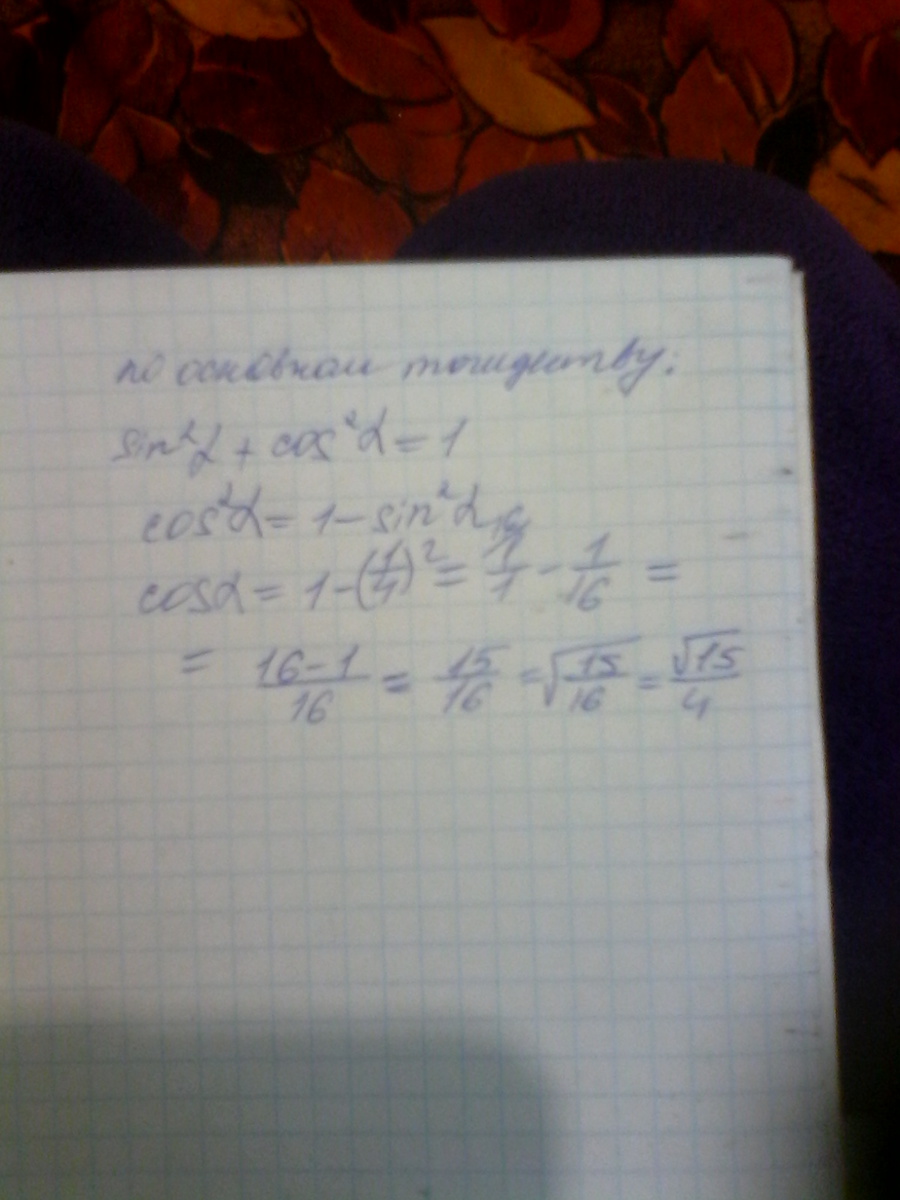 по основном тождеству:
sin²α + cos²α = 1
cos²α = 1 - sin²α
cosα = 1 - (1/4)² = 1/1 - 1/16 =
= 16-1/16 = 15/16 = √15/16 = √15/4